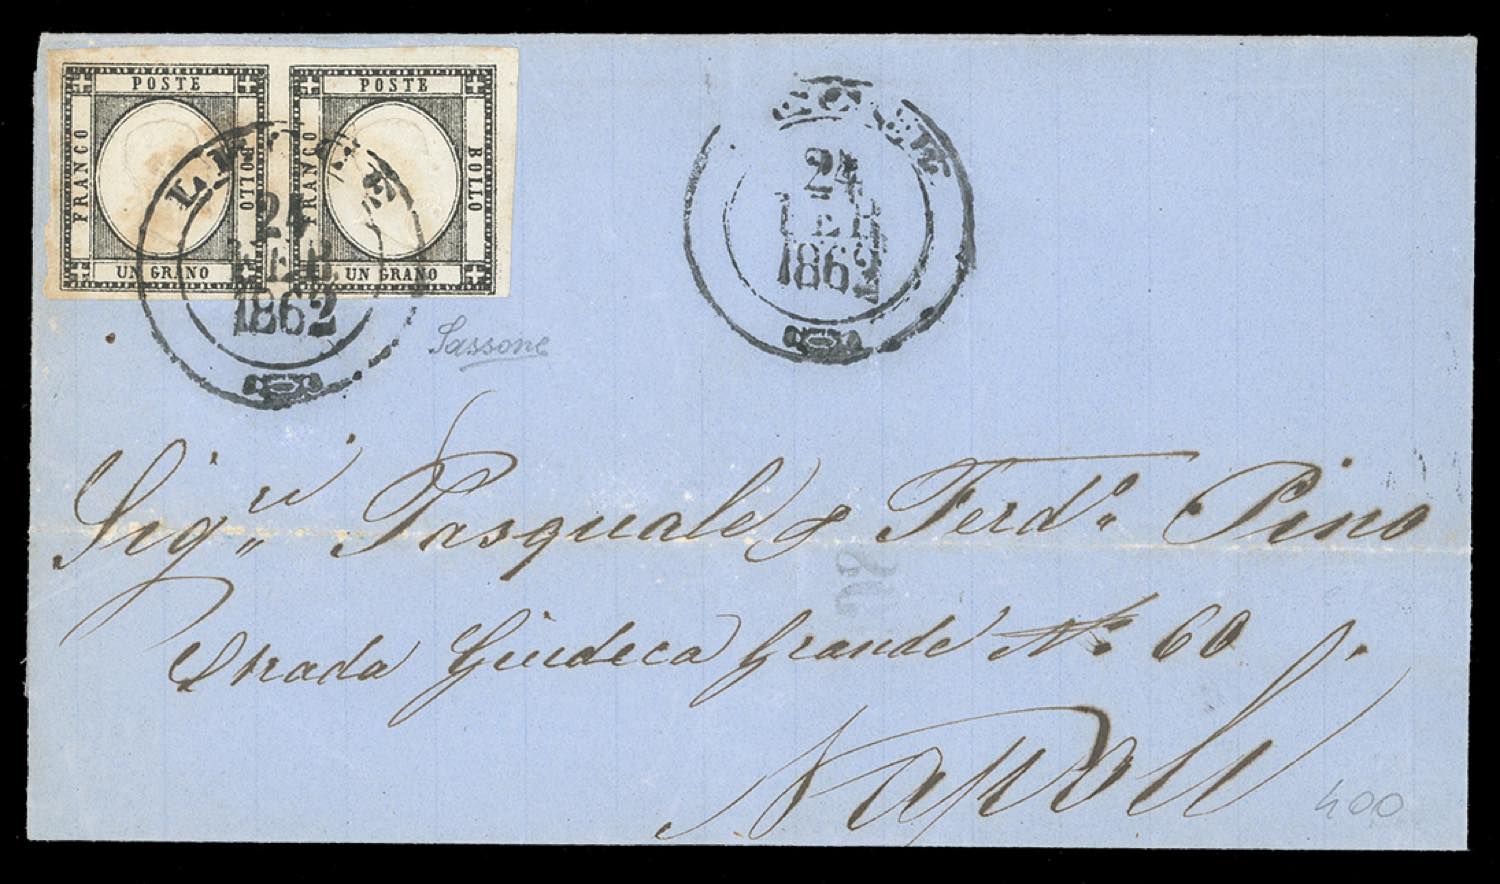 POSTE
FRANCO
BOLLO
UN GRANO
POSTE
FRANCO
BOLLO
UN GRANO
LECCE
24
FEB
1862
LECCE
24
FEB
1862
Sassone
Sig.ri Pasquale & Ferd.o Pino
Strada Giudeca Grande No. 60
Napoli
400